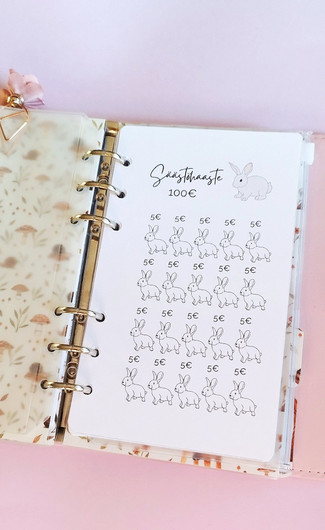 Säästöhaaste
100€
5€ 5€ 5€ 5€ 5€
5€ 5€ 5€ 5€ 5€
5€ 5€ 5€ 5€ 5€
5€ 5€ 5€ 5€ 5€